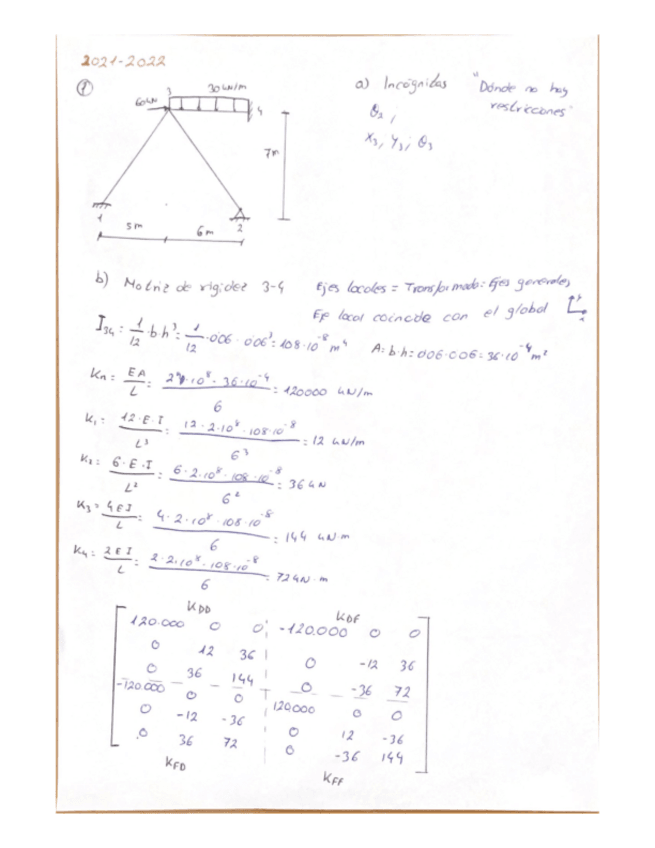 2021-2022
①
3 30 kN/m
60kN
4
7m
1
2
5m 6m
a) Incógnitas "Dónde no hay
restricciones"
θ2 ;
X3, Y3; θ3
b) Matriz de rigidez 3-4 Ejes locales = Transformada: Ejes generales
Eje local coincide con el global
I34 = 1/12 · b·h³ = 1/12 · 0'06 · 0'06³ = 108·10⁻⁸ m⁴ A = b·h = 0'06·0'06 = 36·10⁻⁴ m²
Kn = EA/L = 2·10⁸ · 36·10⁻⁴ / 6 = 120000 kN/m
K1 = 12·E·I/L³ = 12·2·10⁸·108·10⁻⁸ / 6³ = 12 kN/m
K2 = 6·E·I/L² = 6·2·10⁸·108·10⁻⁸ / 6² = 36 kN
K3 = 4EI/L = 4·2·10⁸·108·10⁻⁸ / 6 = 144 kN·m
K4 = 2EI/L = 2·2·10⁸·108·10⁻⁸ / 6 = 72 kN·m
KDD KDF
120.000 0 0 -120.000 0 0
0 12 36 0 -12 36
0 36 144 0 -36 72
-120.000 0 0 120.000 0 0
0 -12 -36 0 12 -36
0 36 72 0 -36 144
KFD KFF